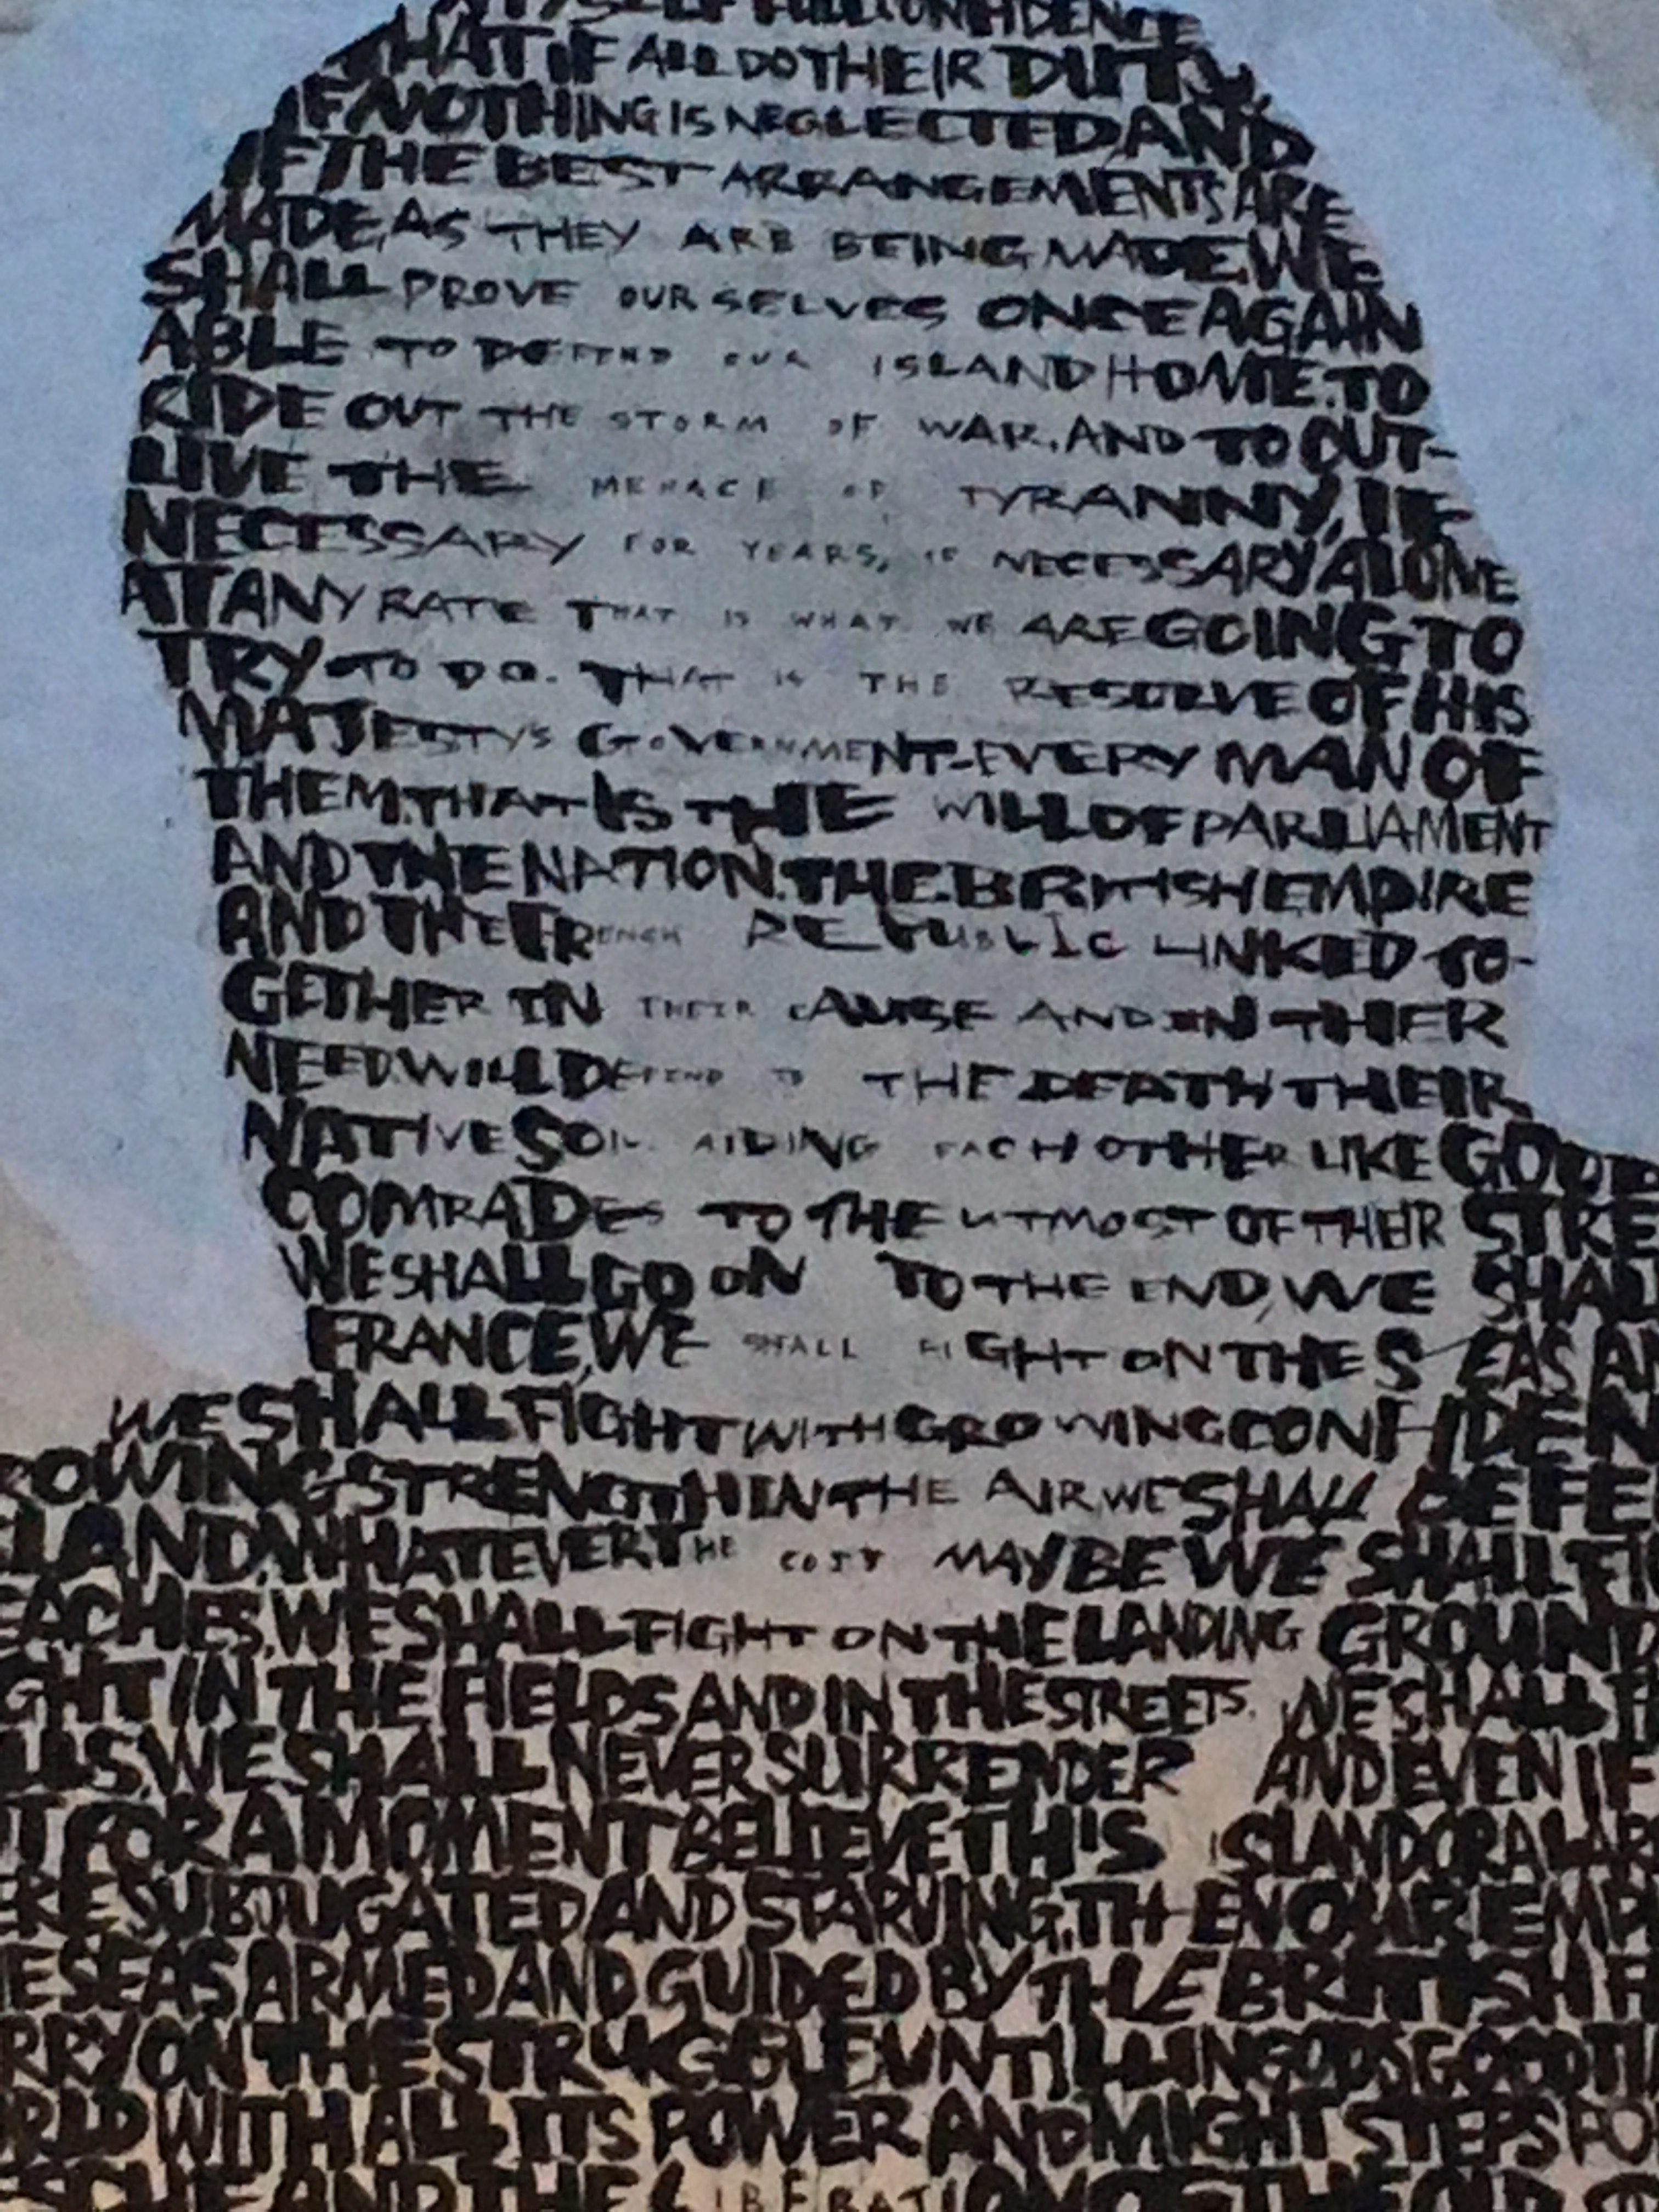 MYSELF FULL CONFIDENCE
THAT IF ALL DO THEIR DUTY,
IF NOTHING IS NEGLECTED, AND
IF THE BEST ARRANGEMENTS ARE
MADE, AS THEY ARE BEING MADE, WE
SHALL PROVE OURSELVES ONCE AGAIN
ABLE TO DEFEND OUR ISLAND HOME. TO
RIDE OUT THE STORM OF WAR, AND TO OUT-
LIVE THE MENACE OF TYRANNY, IF
NECESSARY FOR YEARS, IF NECESSARY ALONE
AT ANY RATE THAT IS WHAT WE ARE GOING TO
TRY TO DO. THAT IS THE RESOLVE OF HIS
MAJESTY'S GOVERNMENT-EVERY MAN OF
THEM. THAT IS THE WILL OF PARLIAMENT
AND THE NATION. THE BRITISH EMPIRE
AND THE FRENCH REPUBLIC LINKED TO-
GETHER IN THEIR CAUSE AND IN THER
NEED. WILL DEFEND TO THE DEATH THEIR
NATIVE SOIL AIDING EACH OTHER LIKE GOOD
COMRADES TO THE UTMOST OF THEIR STRE
WE SHALL GO ON TO THE END, WE SHAL
FRANCE, WE SHALL FIGHT ON THE SEAS AN
WE SHALL FIGHT WITH GROWING CONFIDEN
ROWING STRENGTH IN THE AIR WE SHALL DEFE
LAND, WHATEVER THE COST MAY BE WE SHALL FI
EACHES, WE SHALL FIGHT ON THE LANDING GROUND
GHT IN THE FIELDS AND IN THE STREETS, WE SHALL FI
LLS, WE SHALL NEVER SURRENDER AND EVEN IF
T FOR A MOMENT BELIEVE THIS ISLAND OR A LAR
ERE SUBJUGATED AND STARVING, THEN OUR EMP
E SEAS ARMED AND GUIDED BY THE BRITISH F
RRY ON THE STRUGGLE UNTILL IN GODS GOOD TI
RLD WITH ALL ITS POWER AND MIGHT STEPS FO
AND THE LIBERATION OF THE OLD